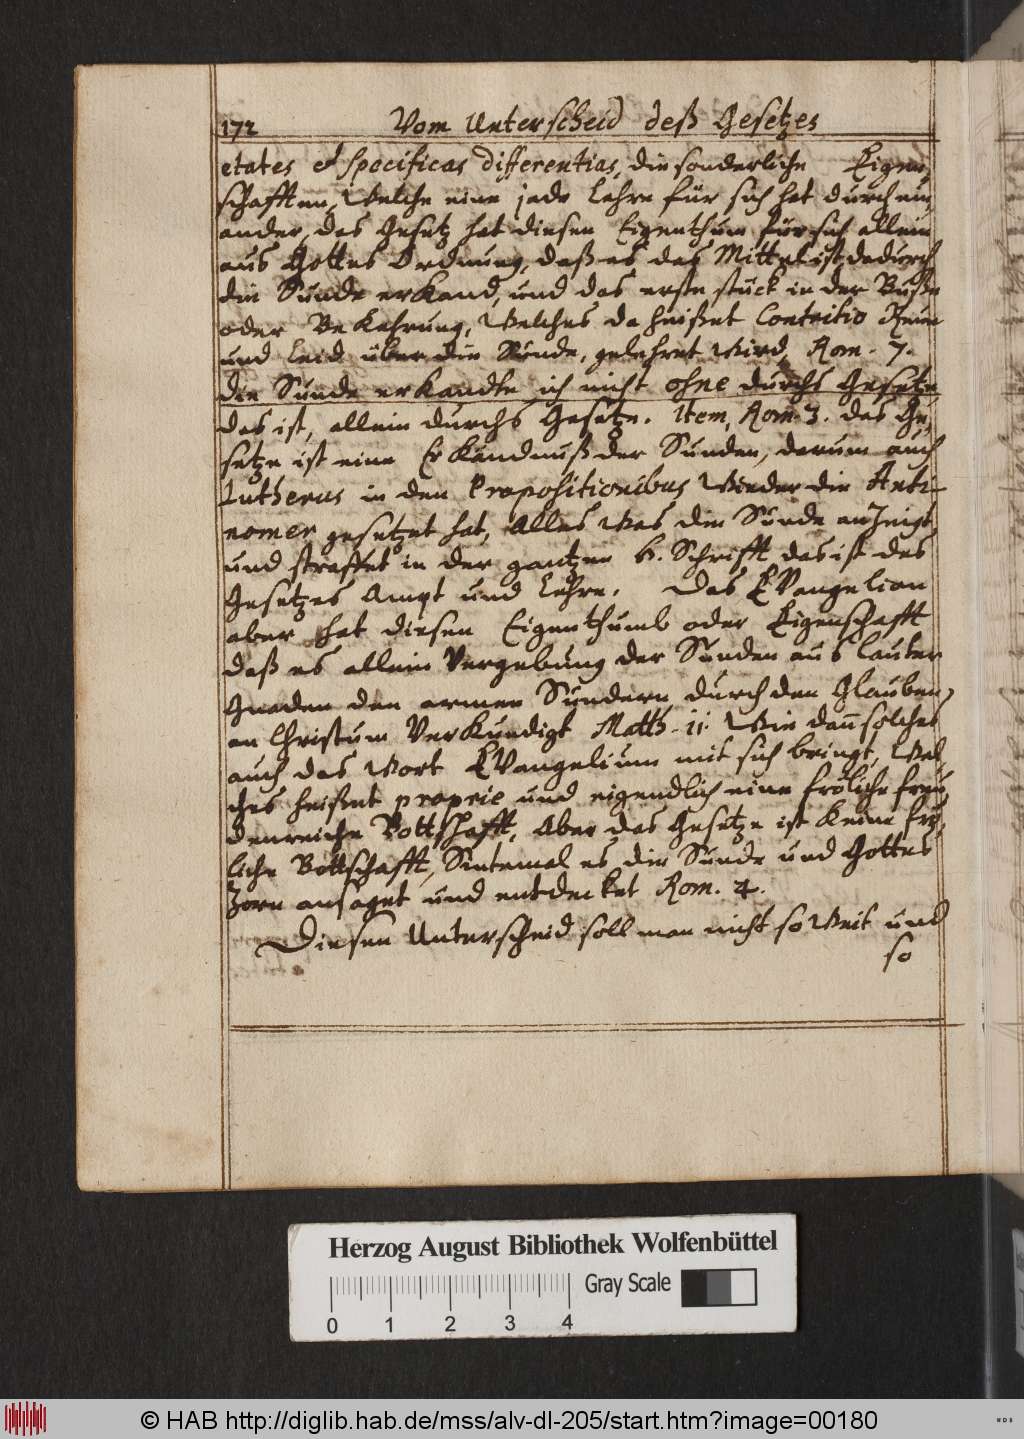 172 Vom Unterscheid deß Gesetzes
etates et specificas differentias, die sonderliche Eigen,
schafften, Welche eine jede Lehre für sich hat durch ein,
ander, das Gesetz hat diesen Eigenthum für sich allein
aus Gottes Ordnung, daß es das Mittel ist dadurch
die Sünde erkand, und das erste stück in der Buße
oder Bekehrung, Welches da heißet Contritio Reue
und Leid über die Sünde, gelehret Wird, Rom. 7.
die Sünde erkandte ich nicht ohne durchs Gesetze,
das ist, allein durchs Gesetze. Item, Rom. 3. das Ge,
setze ist eine Erkändnuß der Sünden, darum auch
Lutherus in den Propositionibus Wieder die Anti-
nomer gesetzet hat, Alles Was die Sünde anzeigt
und straffet in der gantzen h. Schrifft das ist des
Gesetzes Ampt und Lehre. Das EVangelion
aber hat diesen Eigenthumb oder Eigenschafft
daß es allein Vergebung der Sünden aus lauter
Gnaden den armen Sündern durch den Glauben,
an Christum Verkündigt Matth. 11. Wie dann solches
auch das Wort EVangelium mit sich bringt, Wel,
ches heißet proprie und eigendlich eine fröliche freu
denreiche Bottschafft, Aber das Gesetze ist keine frö,
liche Bottschafft, Sintemal es die Sünde und Gottes
Zorn ansaget und entdecket Rom. 4.
Diesen Unterscheid soll man nicht so Weit und
so
Herzog August Bibliothek Wolfenbüttel
Gray Scale
0 1 2 3 4
© HAB http://diglib.hab.de/mss/alv-dl-205/start.htm?image=00180